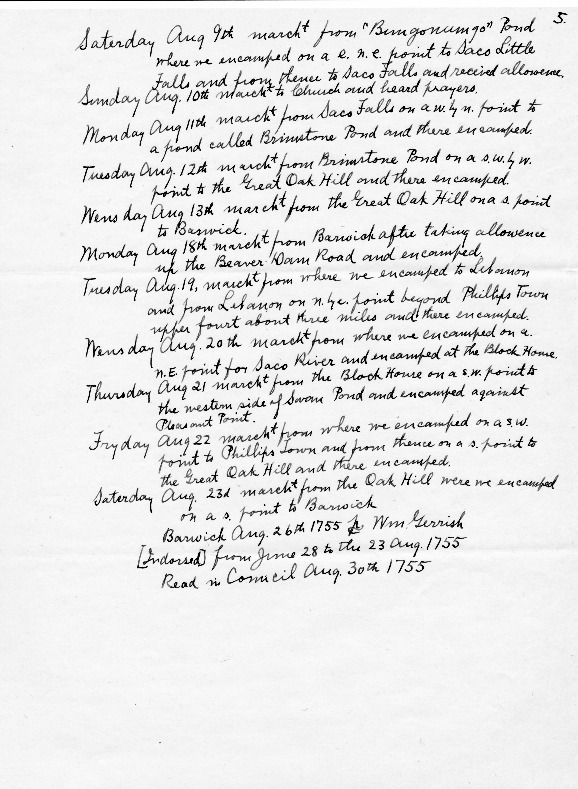 5.
Saterday Aug 9th marcht from "Bungonumgo" Pond
where we encamped on a e. n.e. point to Saco Little
Falls and from thence to Saco Falls and recived allowence.
Sunday Aug. 10th marcht to Church and heard prayers.
Monday Aug 11th marcht from Saco Falls on a w. by n. point to
a pond called Brimstone Pond and there encamped.
Tuesday Aug. 12th marcht from Brimstone Pond on a s.w. by w.
point to the Great Oak Hill and there encamped.
Wensday Aug 13th marcht from the Great Oak Hill on a s. point
to Barwick.
Monday Aug 18th marcht from Barwick after taking allowence
up the Beaver Dam Road and encamped.
Tuesday Aug. 19, marcht from where we encamped to Lebanon
and from Lebanon on n. by e. point beyond Phillips Town
upper fourt about three miles and there encamped.
Wensday Aug. 20th marcht from where we encamped on a.
n.E. point for Saco River and encamped at the Block House.
Thursday Aug 21 marcht from the Block House on a s.w. point to
the western side of Swan Pond and encamped against
Pleasant Point.
Fryday Aug 22 marcht from where we encamped on a s.w.
point to Phillips Town and from thence on a s. point to
the Great Oak Hill and there encamped.
Saterday Aug. 23d marcht from the Oak Hill were we encamped
on a s. point to Barwick
Barwick Aug. 26th 1755 Wm Gerrish
[Indorsed] from June 28 to the 23 Aug. 1755
Read in Council Aug. 30th 1755